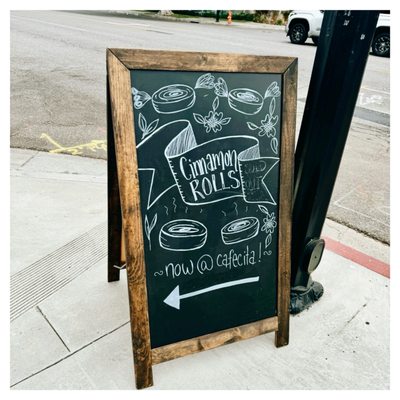 Cinnamon
ROLLS
~now @ cafecita!~